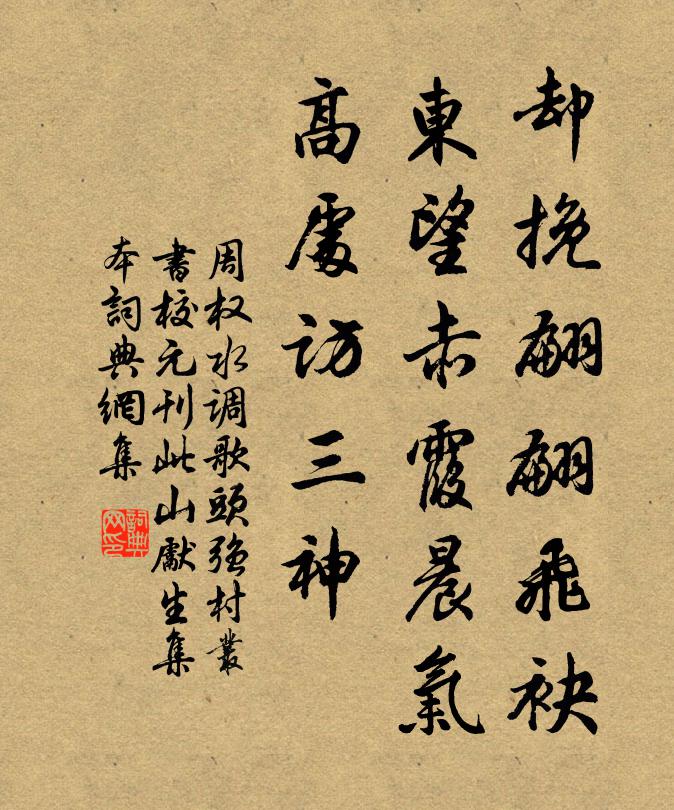 却挽翩翩飛袂
東望赤霞晨氣
高處訪三神
周权水调歌頭强村叢
書校元刊此山獻生集
本詞典網集
詞典
网印